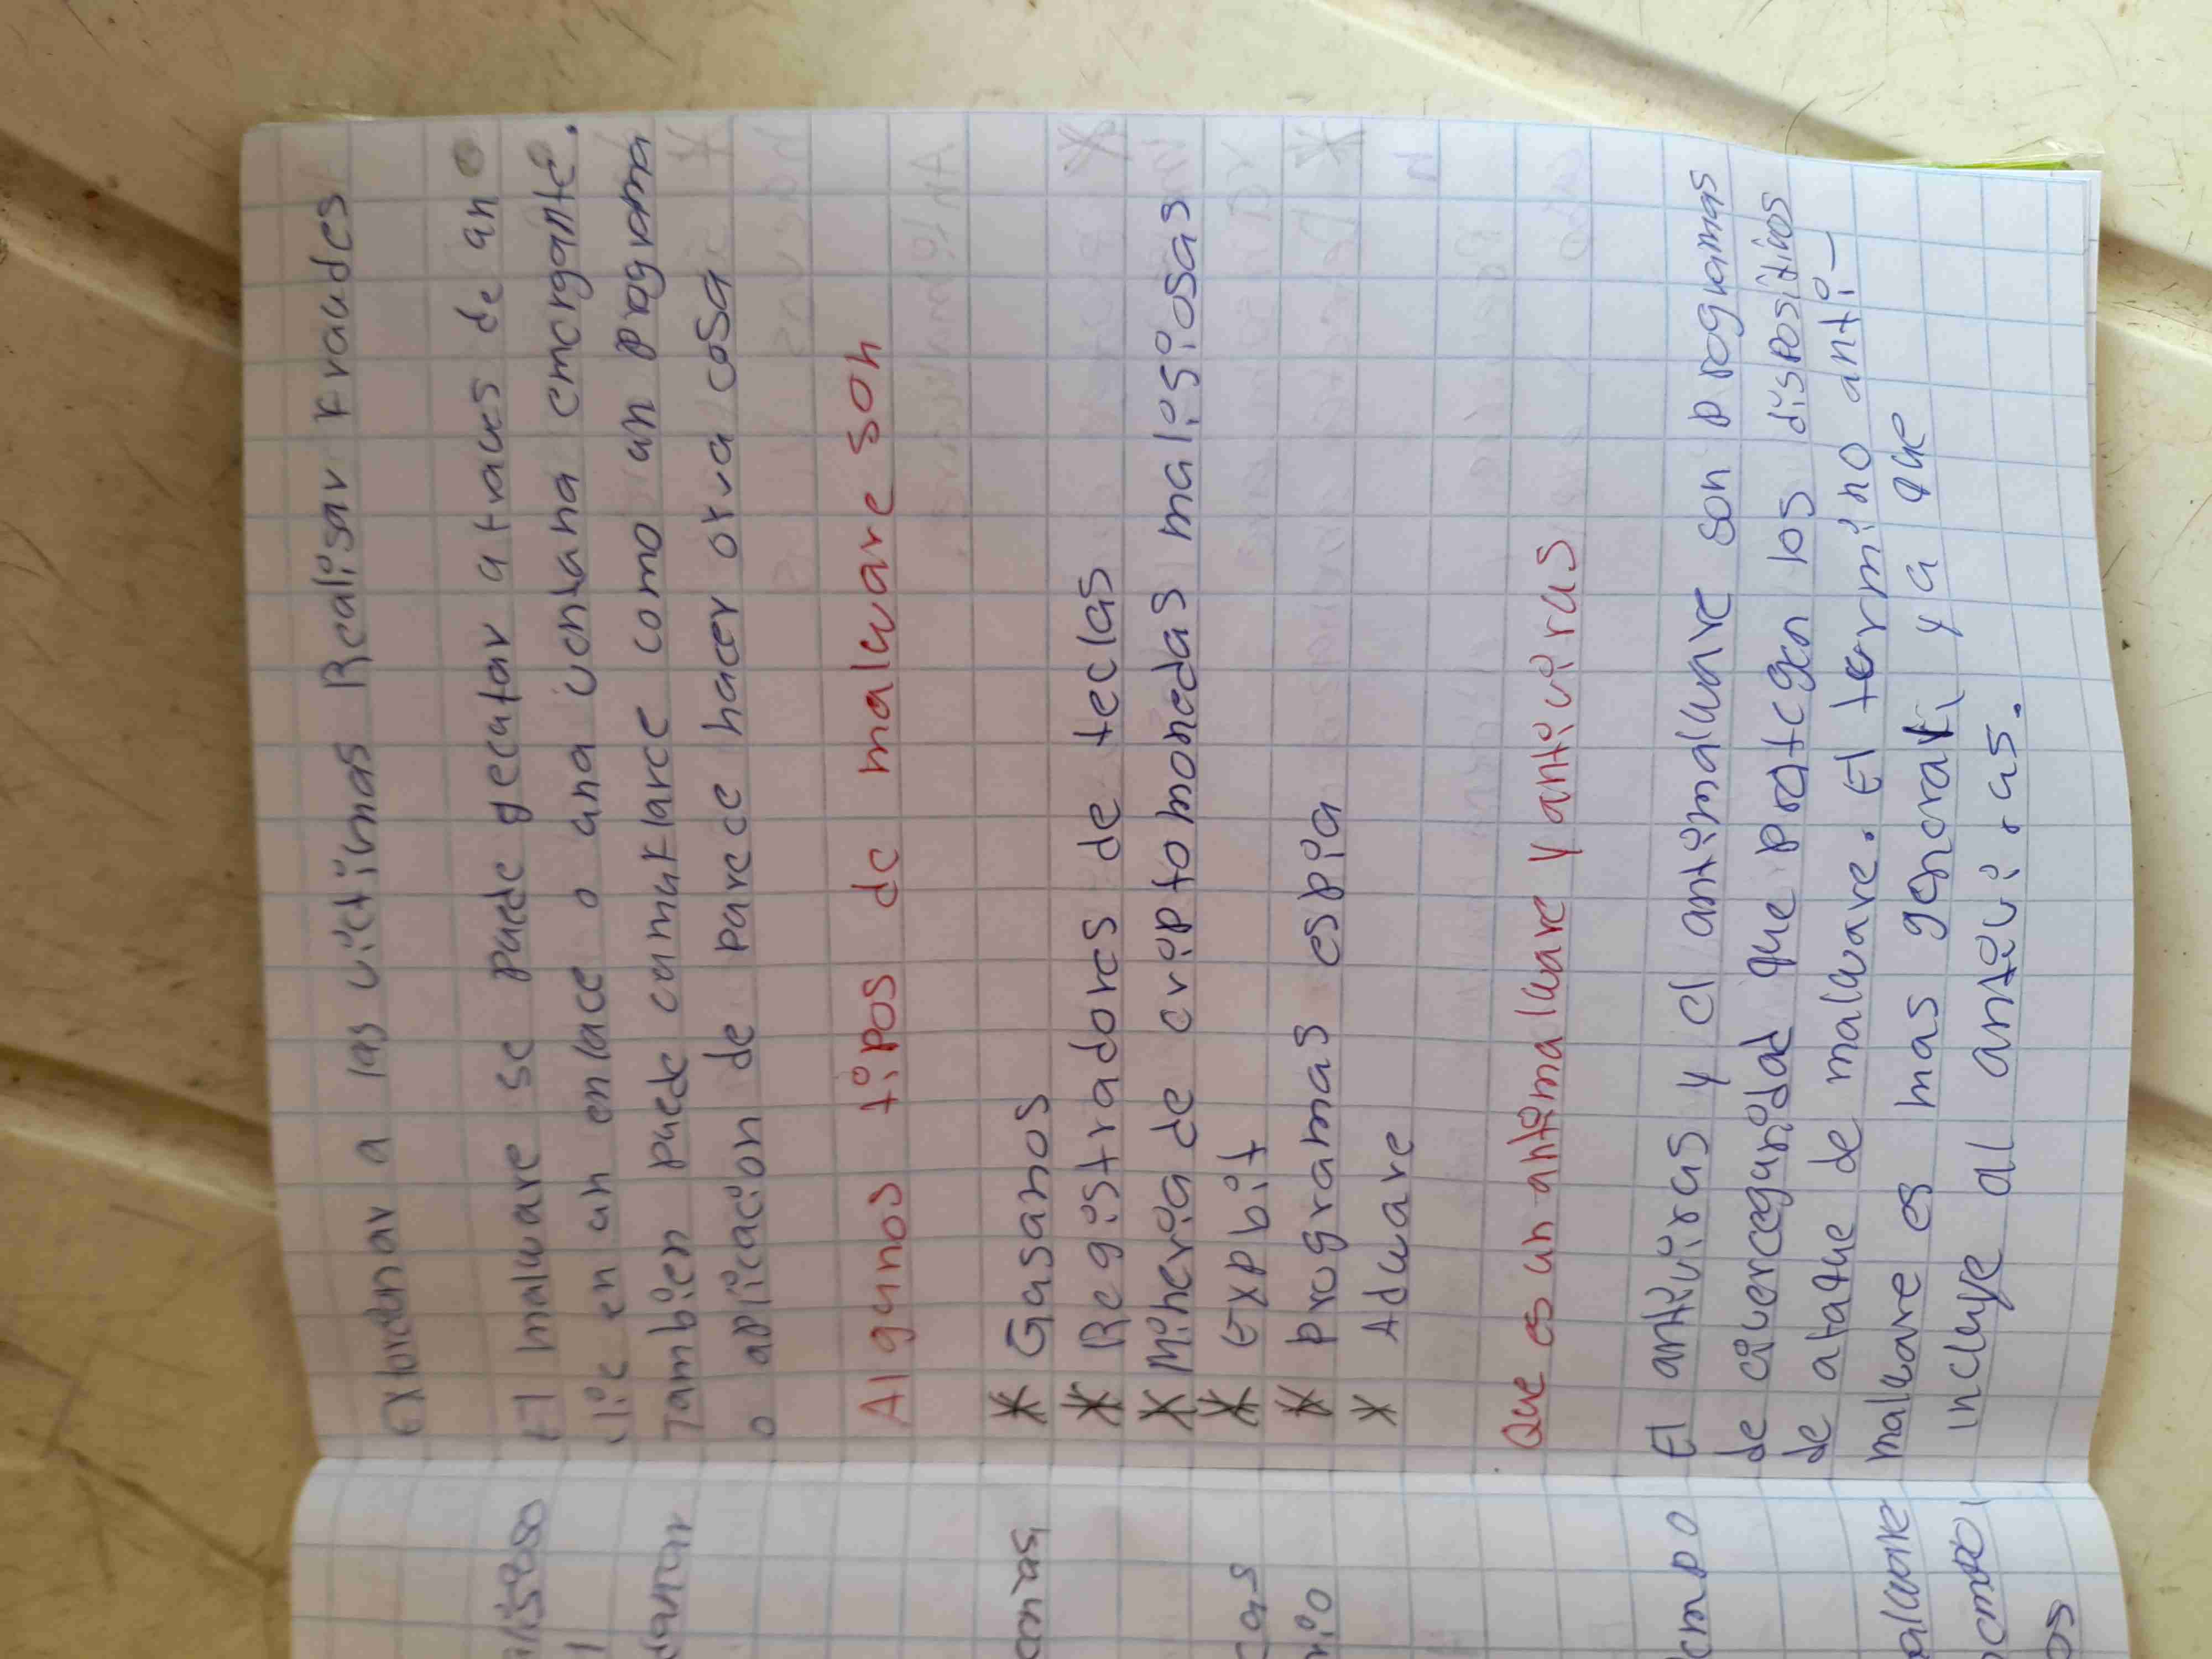 Extordenar a las victimas Realisar Fraudes
El malware se puede gecutar atraves de un
clic en un enlace o una ventana emergante.
Tambien puede camuflarce como un programa
o aplicacion de parece hacer otra cosa
Algunos tipos de malware son
* Gusanos
* Registradores de teclas
* Mineria de criptomonedas malisiosas
* Explit
* programas espia
* Adware
Que es un antimalware y antivirus
El antivirus y el antimalware son programas
de civerceguridad que protegen los dispositivos
de atatue de malware. El termino anti-
malware es mas general y a que
incluye al antivirus.
danar
cas
nio
empo
alware
os